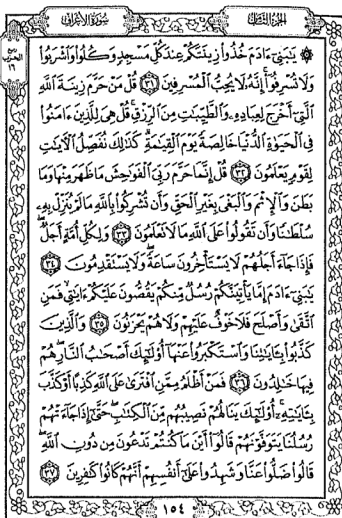 الجزء الثامن
سورة الأعراف
ربع الحزب ١٦
۞ يَٰبَنِىٓ ءَادَمَ خُذُوا۟ زِينَتَكُمْ عِندَ كُلِّ مَسْجِدٍ وَكُلُوا۟ وَٱشْرَبُوا۟
وَلَا تُسْرِفُوٓا۟ إِنَّهُۥ لَا يُحِبُّ ٱلْمُسْرِفِينَ ٣١ قُلْ مَنْ حَرَّمَ زِينَةَ ٱللَّهِ
ٱلَّتِىٓ أَخْرَجَ لِعِبَادِهِۦ وَٱلطَّيِّبَٰتِ مِنَ ٱلرِّزْقِ ۚ قُلْ هِىَ لِلَّذِينَ ءَامَنُوا۟
فِى ٱلْحَيَوٰةِ ٱلدُّنْيَا خَالِصَةً يَوْمَ ٱلْقِيَٰمَةِ ۗ كَذَٰلِكَ نُفَصِّلُ ٱلْءَايَٰتِ
لِقَوْمٍ يَعْلَمُونَ ٣٢ قُلْ إِنَّمَا حَرَّمَ رَبِّىَ ٱلْفَوَٰحِشَ مَا ظَهَرَ مِنْهَا وَمَا
بَطَنَ وَٱلْإِثْمَ وَٱلْبَغْىَ بِغَيْرِ ٱلْحَقِّ وَأَن تُشْرِكُوا۟ بِٱللَّهِ مَا لَمْ يُنَزِّلْ بِهِۦ
سُلْطَٰنًا وَأَن تَقُولُوا۟ عَلَى ٱللَّهِ مَا لَا تَعْلَمُونَ ٣٣ وَلِكُلِّ أُمَّةٍ أَجَلٌ ۖ
فَإِذَا جَآءَ أَجَلُهُمْ لَا يَسْتَأْخِرُونَ سَاعَةً ۖ وَلَا يَسْتَقْدِمُونَ ٣٤
يَٰبَنِىٓ ءَادَمَ إِمَّا يَأْتِيَنَّكُمْ رُسُلٌ مِّنكُمْ يَقُصُّونَ عَلَيْكُمْ ءَايَٰتِى ۙ فَمَنِ
ٱتَّقَىٰ وَأَصْلَحَ فَلَا خَوْفٌ عَلَيْهِمْ وَلَا هُمْ يَحْزَنُونَ ٣٥ وَٱلَّذِينَ
كَذَّبُوا۟ بِـَٔايَٰتِنَا وَٱسْتَكْبَرُوا۟ عَنْهَآ أُو۟لَٰٓئِكَ أَصْحَٰبُ ٱلنَّارِ ۖ هُمْ
فِيهَا خَٰلِدُونَ ٣٦ فَمَنْ أَظْلَمُ مِمَّنِ ٱفْتَرَىٰ عَلَى ٱللَّهِ كَذِبًا أَوْ كَذَّبَ
بِـَٔايَٰتِهِۦٓ ۚ أُو۟لَٰٓئِكَ يَنَالُهُمْ نَصِيبُهُم مِّنَ ٱلْكِتَٰبِ ۖ حَتَّىٰٓ إِذَا جَآءَتْهُمْ
رُسُلُنَا يَتَوَفَّوْنَهُمْ قَالُوٓا۟ أَيْنَ مَا كُنتُمْ تَدْعُونَ مِن دُونِ ٱللَّهِ ۖ
قَالُوا۟ ضَلُّوا۟ عَنَّا وَشَهِدُوا۟ عَلَىٰٓ أَنفُسِهِمْ أَنَّهُمْ كَانُوا۟ كَٰفِرِينَ ٣٧
١٥٤